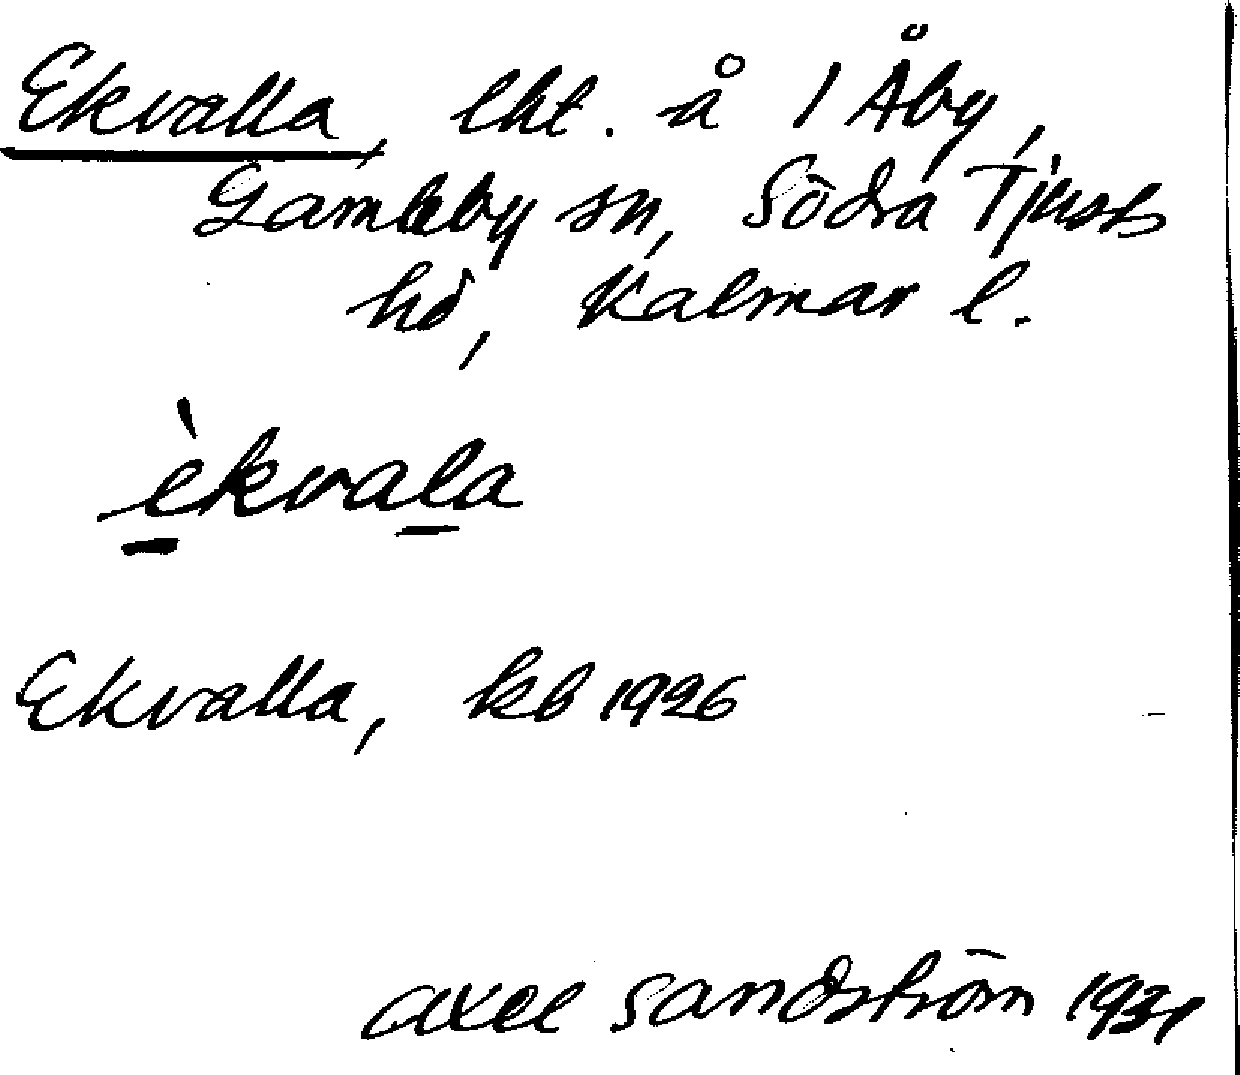 Ekvalla, lht. å 1 Åby,
Gamleby sn, Södra Tjusts
hd, Kalmar l.
èkvala
Ekvalla, kb 1926
Axel Sandström 1931